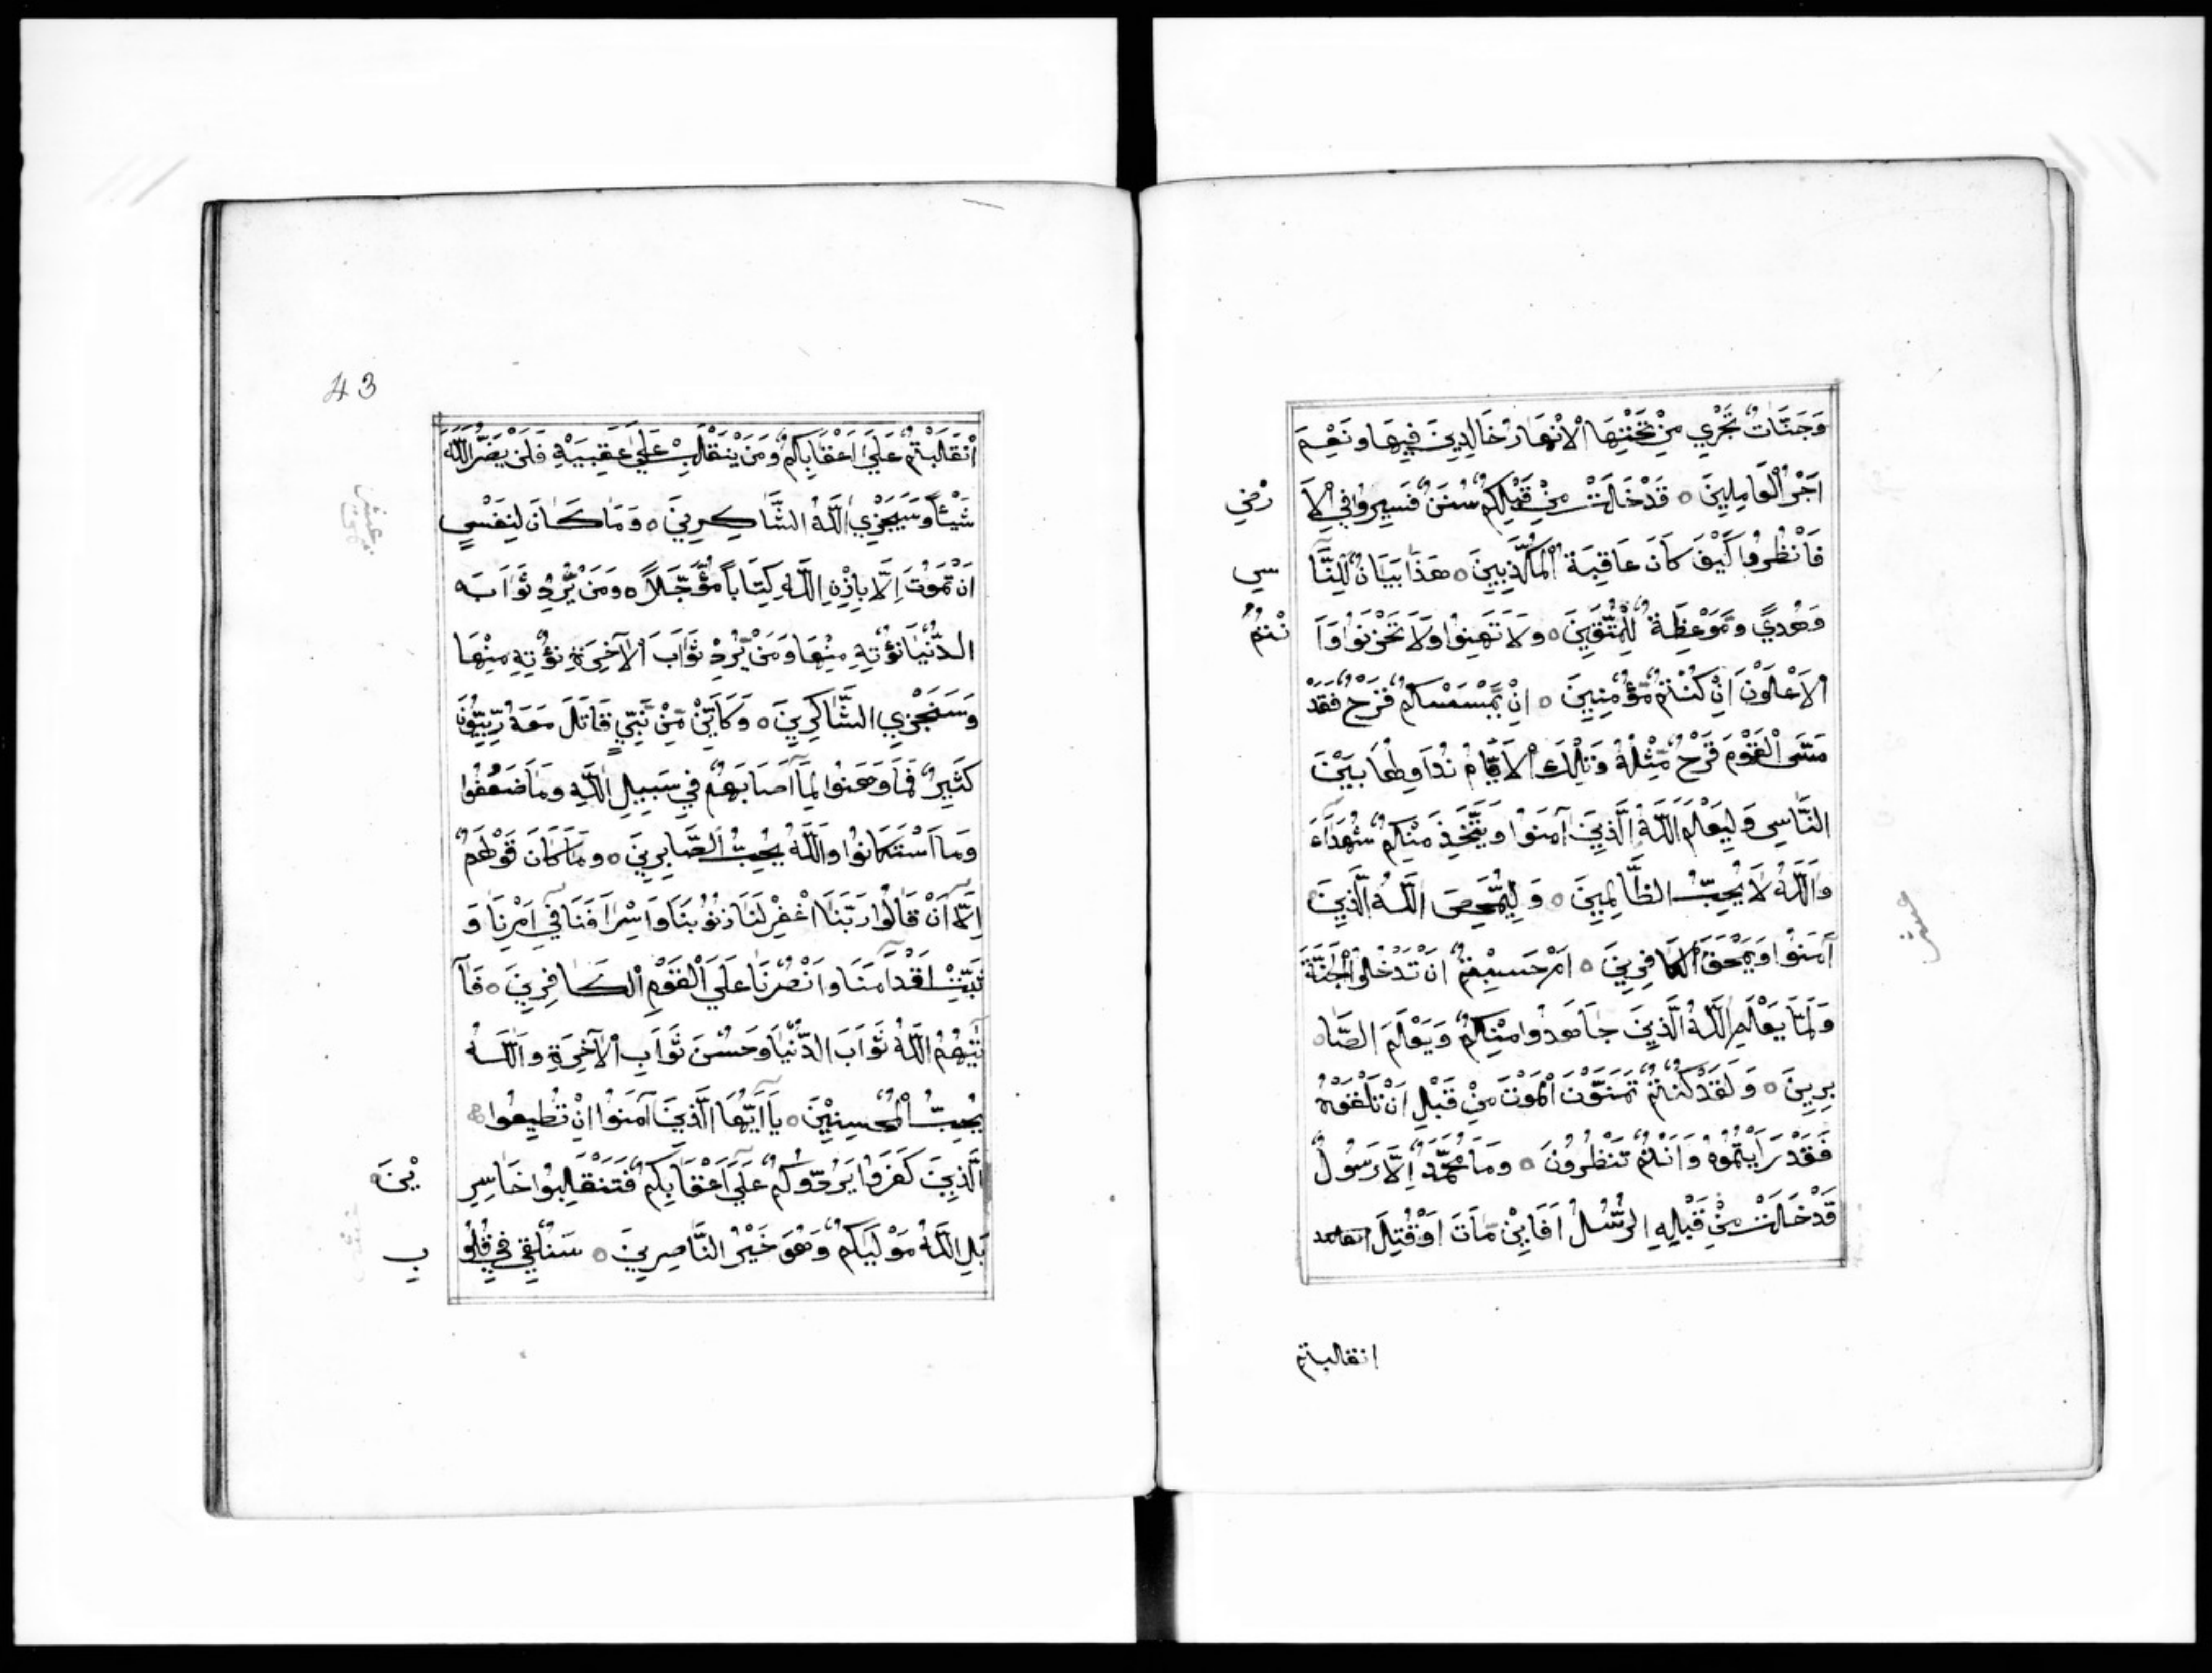 وَجَنَّاتٌ تَجْرِي مِنْ تَحْتِهَا الْاَنْهَارُ خَالِدِينَ فِيهَا وَنِعْمَ
اَجْرُ الْعَامِلِينَ ○ قَدْ خَلَتْ مِنْ قَبْلِكُمْ سُنَنٌ فَسِيرُوا فِي الْاَ رْضِ
فَانْظُرُوا كَيْفَ كَانَ عَاقِبَةُ الْمُكَذِّبِينَ ○ هَذَا بَيَانٌ لِلنَّا سِ
وَهُدًي وَّمَوْعِظَةٌ لِّلْمُتَّقِينَ ○ وَلَا تَهِنُوا وَلَا تَحْزَنُوا وَاَ نْتُمُ
الْاَعْلَوْنَ اِنْ كُنْتُمْ مُّؤْمِنِينَ ○ اِنْ يَّمْسَسْكُمْ قَرْحٌ فَقَدْ
مَسَّ الْقَوْمَ قَرْحٌ مِّثْلُهُ وَتِلْكَ الْاَيَّامُ نُدَاوِلُهَا بَيْنَ
النَّاسِ وَلِيَعْلَمَ اللّٰهُ الَّذِينَ آمَنُوا وَيَتَّخِذَ مِنْكُمْ شُهَدَآءَ
وَاللّٰهُ لَا يُحِبُّ الظَّالِمِينَ ○ وَلِيُمَحِّصَ اللّٰهُ الَّذِينَ
آمَنُوا وَيَمْحَقَ الْكَافِرِينَ ○ اَمْ حَسِبْتُمْ اَنْ تَدْخُلُوا الْجَنَّةَ
وَلَمَّا يَعْلَمِ اللّٰهُ الَّذِينَ جَاهَدُوا مِنْكُمْ وَيَعْلَمَ الصَّا
بِرِينَ ○ وَلَقَدْ كُنْتُمْ تَمَنَّوْنَ الْمَوْتَ مِنْ قَبْلِ اَنْ تَلْقَوْهُ
فَقَدْ رَاَيْتُمُوهُ وَاَنْتُمْ تَنْظُرُونَ ○ وَمَا مُحَمَّدٌ اِلَّا رَسُولٌ
قَدْ خَلَتْ مِنْ قَبْلِهِ الرُّسُلُ اَفَايِنْ مَّاتَ اَوْ قُتِلَ
عشر
انقلبتم
43
اِنْقَلَبْتُمْ عَلَي اَعْقَابِكُمْ وَمَنْ يَنْقَلِبْ عَلَي عَقِبَيْهِ فَلَنْ يَضُرَّ اللّٰهَ
شَيْئًا وَسَيَجْزِي اللّٰهُ الشَّاكِرِينَ ○ وَمَا كَانَ لِنَفْسٍ
اَنْ تَمُوتَ اِلَّا بِاِذْنِ اللّٰهِ كِتَابًا مُّؤَجَّلًا ○ وَمَنْ يُّرِدْ ثَوَابَ
الدُّنْيَا نُؤْتِهِ مِنْهَا وَمَنْ يُّرِدْ ثَوَابَ الْآخِرَةِ نُؤْتِهِ مِنْهَا
وَسَنَجْزِي الشَّاكِرِينَ ○ وَكَاَيِّنْ مِّنْ نَّبِيٍّ قَاتَلَ مَعَهُ رِبِّيُّونَ
كَثِيرٌ فَمَا وَهَنُوا لِمَآ اَصَابَهُمْ فِي سَبِيلِ اللّٰهِ وَمَا ضَعُفُوا
وَمَا اسْتَكَانُوا وَاللّٰهُ يُحِبُّ الصَّابِرِينَ ○ وَمَا كَانَ قَوْلَهُمْ
اِلَّآ اَنْ قَالُوا رَبَّنَا اغْفِرْ لَنَا ذُنُوبَنَا وَاِسْرَافَنَا فِي اَمْرِنَا وَ
ثَبِّتْ اَقْدَامَنَا وَانْصُرْنَا عَلَي الْقَوْمِ الْكَافِرِينَ ○ فَآ
تٰيهُمُ اللّٰهُ ثَوَابَ الدُّنْيَا وَحُسْنَ ثَوَابِ الْآخِرَةِ وَاللّٰهُ
يُحِبُّ الْمُحْسِنِينَ ○ يَآ اَيُّهَا الَّذِينَ آمَنُوا اِنْ تُطِيعُوا
الَّذِينَ كَفَرُوا يَرُدُّوكُمْ عَلَي اَعْقَابِكُمْ فَتَنْقَلِبُوا خَاسِرِ يْنَ ○
بَلِ اللّٰهُ مَوْلَيٰكُمْ وَهُوَ خَيْرُ النَّاصِرِينَ ○ سَنُلْقِي فِي قُلُو بِ
عشر